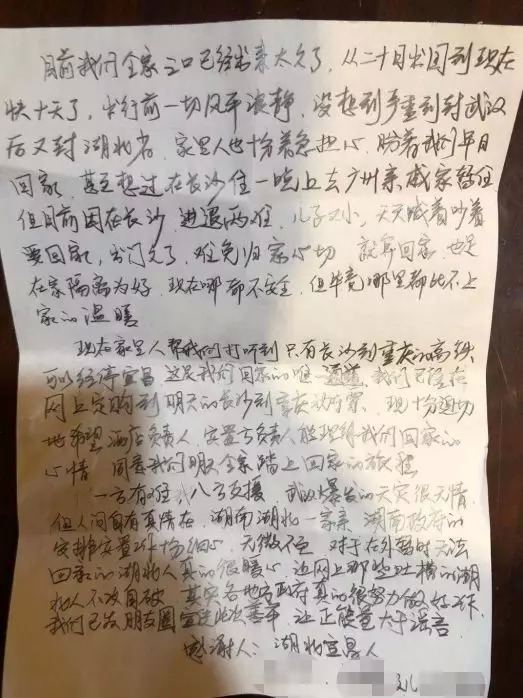 目前我们全家三口已经出来太久了，从二十日出国到现在
快十天了，出行前一切风平浪静，没想到严重到封武汉
后又封湖北省，家里人也恰着急担心，盼着我们早日
回家，甚至想过在长沙住一晚上去广州亲戚家暂住
但目前困在长沙，进退两难，儿子又小，天天喊着吵着
要回家，出门久了，难免归家心切，就算回家，也是
在家隔离为好，现在哪都不安全，但毕竟哪里都比不上
家的温暖
现在家里人帮我们打听到只有长沙到重庆的高铁
可以经停宜昌，这是我们回家的唯一通道，我们已经在
网上定购到明天的长沙到重庆的票，现十分迫切
地希望酒店负责人，安置方负责人能理解我们回家的
心情，同意我们明天全家踏上回家的旅程
一方有难，八方支援，武汉爆发的天灾很无情
但人间自有真情在，湖南湖北一家亲，湖南政府的
安排安置工作十分细心，无微不至，对于在外暂时无法
回家的湖北人真的很暖心，让网上那些吐槽的湖
北人不攻自破，其实各地方政府真的很努力做好工作
我们已发朋友圈宣达此次善举，让正能量大于谣言
感谢人：湖北宜昌人